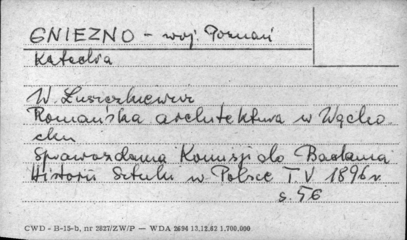 GNIEZNO - woj. Poznań
Katedra
W. Łuszczkiewicz
Romańska architektura w Wącho-
cku
Sprawozdania Komisji do Badania
Historii Sztuki w Polsce T. V 1896 r.
s. 56
CWD - B-15-b, nr 2827/ZW/P — WDA 2694 13.12.62 1.700.000